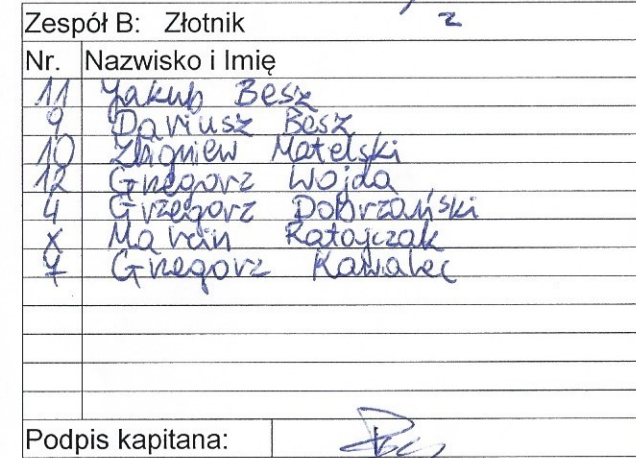 2
Zespół B: Złotnik
Nr. Nazwisko i Imię
11 Jakub Besz
9 Dariusz Besz
10 Zbigniew Matelski
12 Grzegorz Wojda
4 Grzegorz Dobrzański
X Marcin Ratajczak
7 Grzegorz Kawalec
Podpis kapitana: